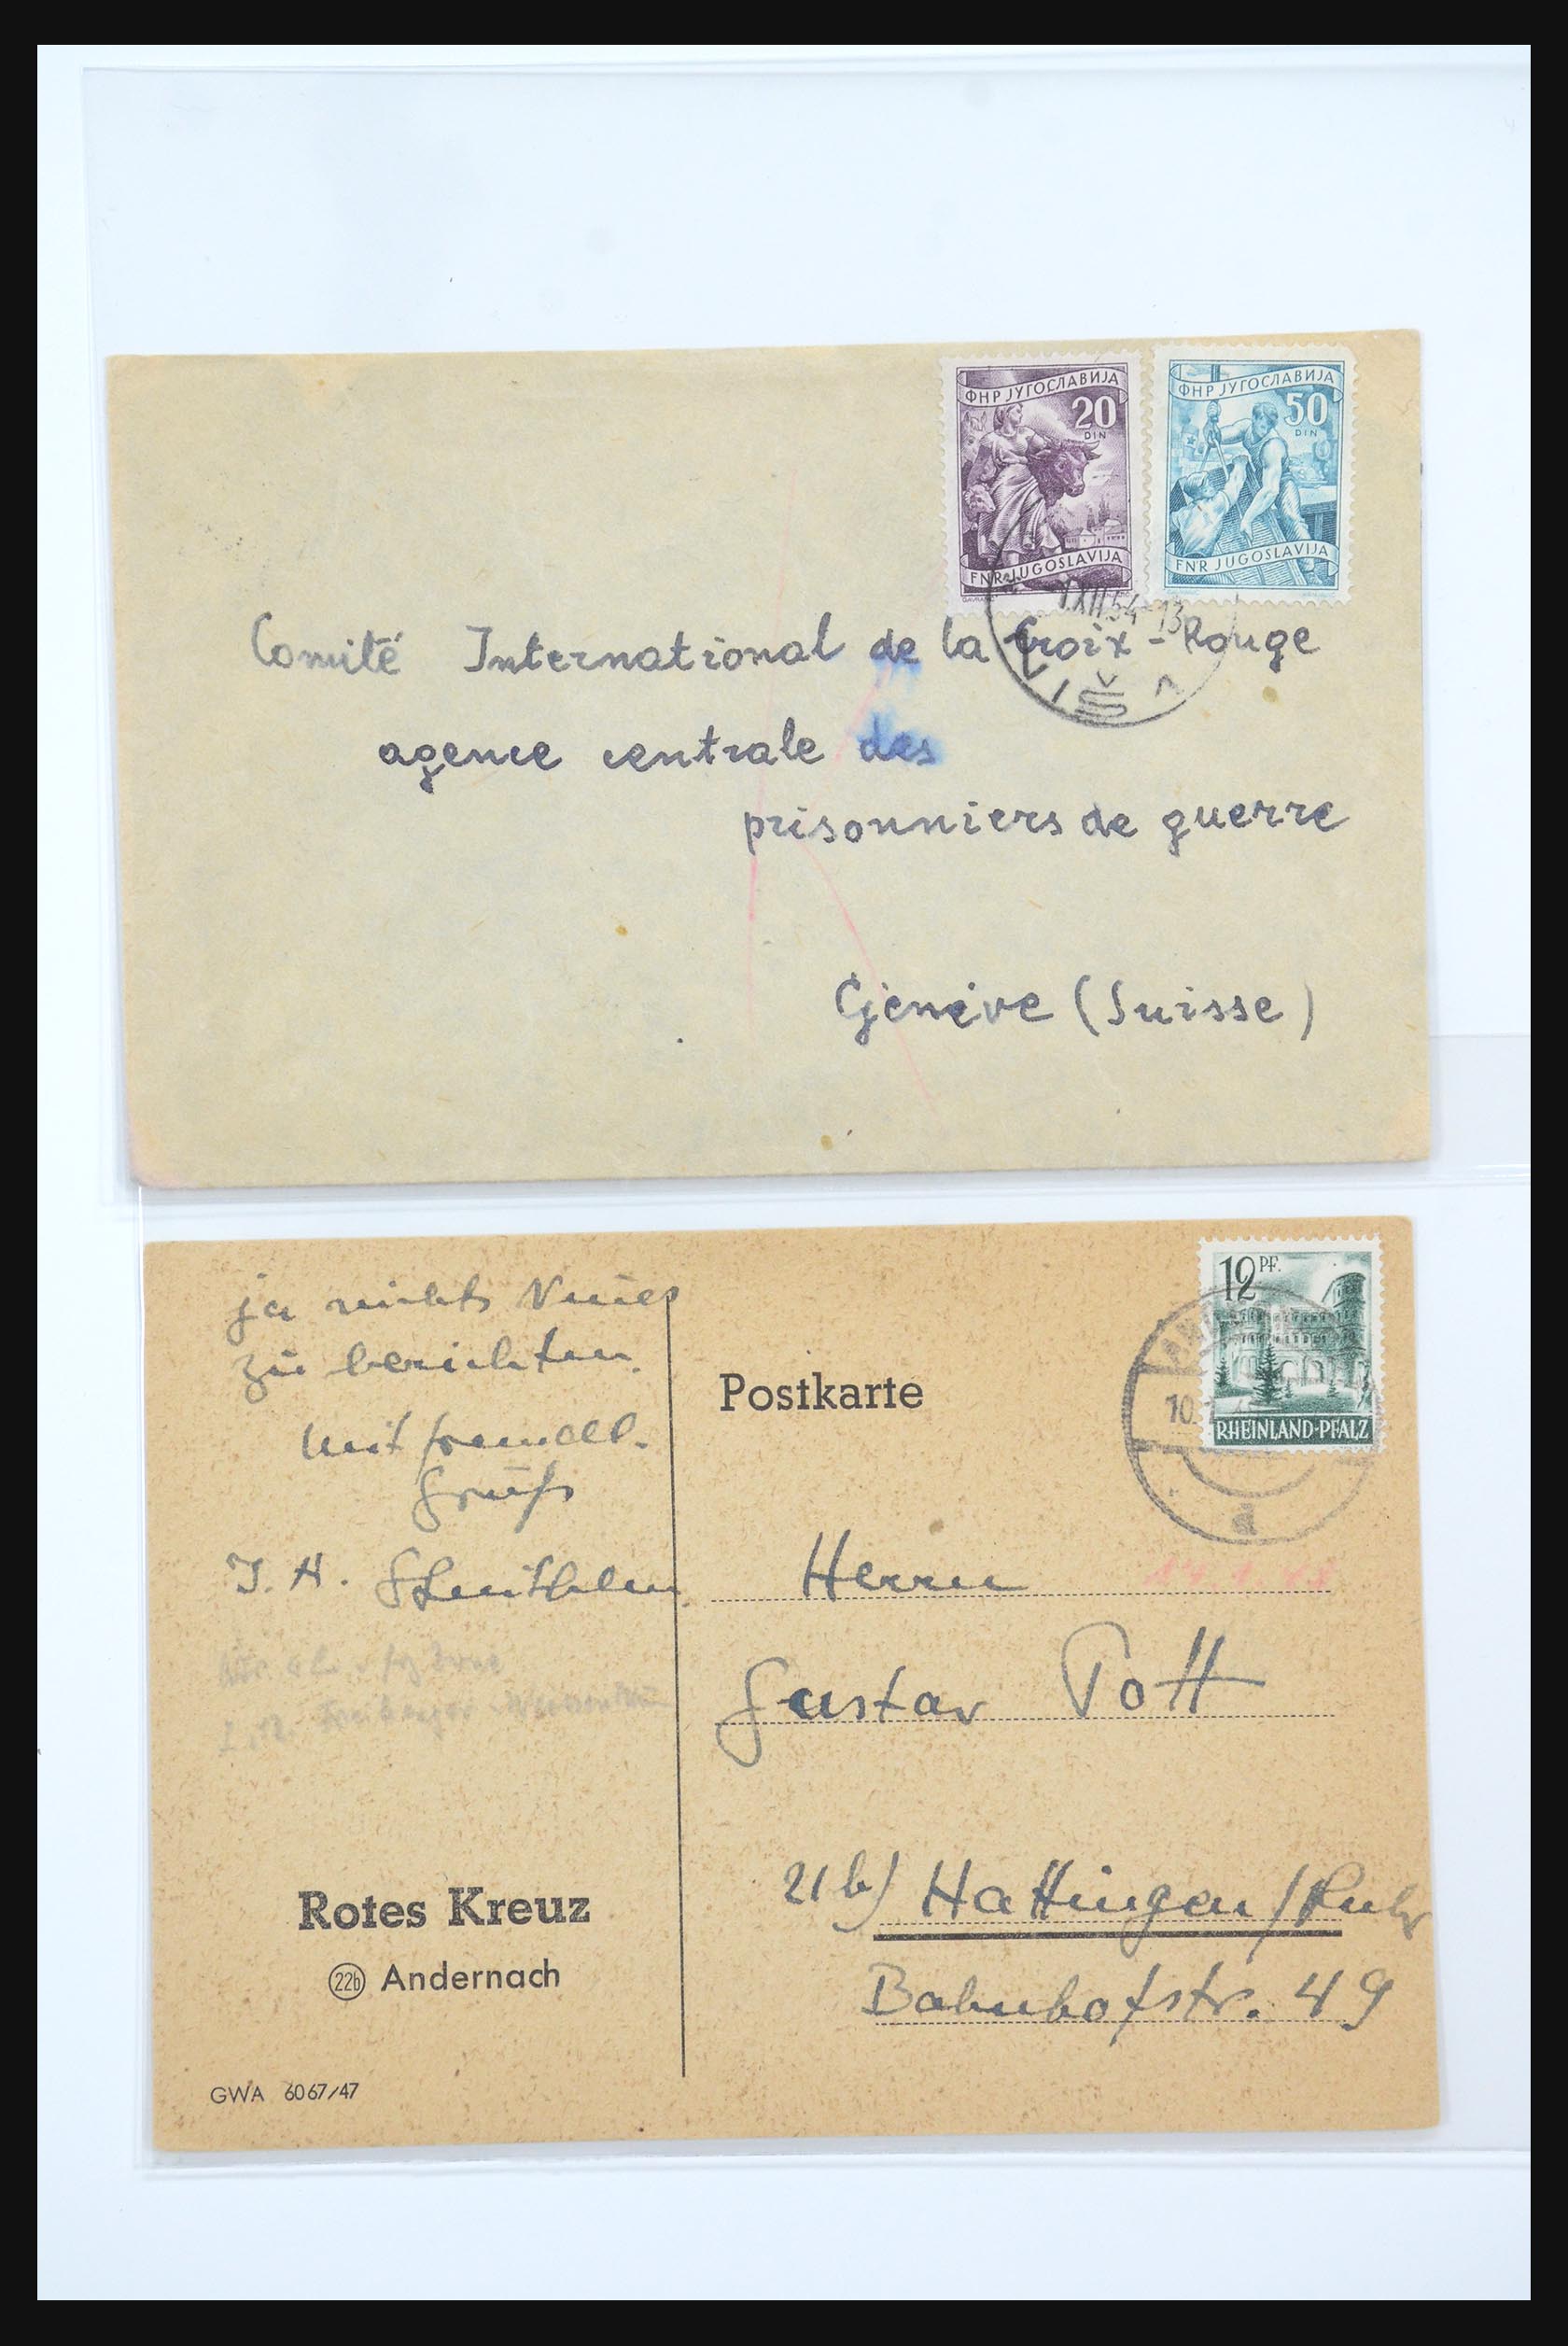 ФНР ЈУГОСЛАВИЈА
20
DIN
FNR JUGOSLAVIJA
ФНР ЈУГОСЛАВИЈА
50
DIN
FNR JUGOSLAVIJA
XII.54-13
Comité International de la Croix-Rouge
agence centrale des
prisonniers de guerre
Genève (Suisse)
ja nichts Neues
zu berichten.
Mit freundl.
Gruß
Postkarte
12 PF.
RHEINLAND-PFALZ
10.
a
Herrn
Gustav Pott
21b) Hattingen/Ruhr
Bahnhofstr. 49
Rotes Kreuz
22b Andernach
GWA 6067/47